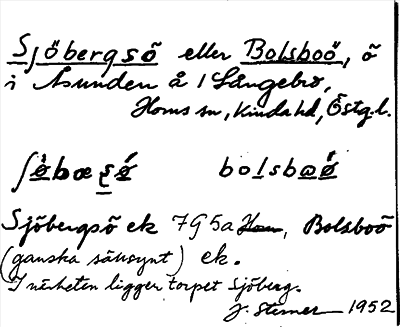 Sjöbergsö eller Bolsboö, ö
i Åsunden å 1 Långebro,
Horns sn, Kinda hd, Östg.l.
bolsbωǿ
Sjöbergsö ek 7G5a Horn, Bolsboö
(ganska sällsynt) ek.
I närheten ligger torpet Sjöberg.
J. Sterner 1952